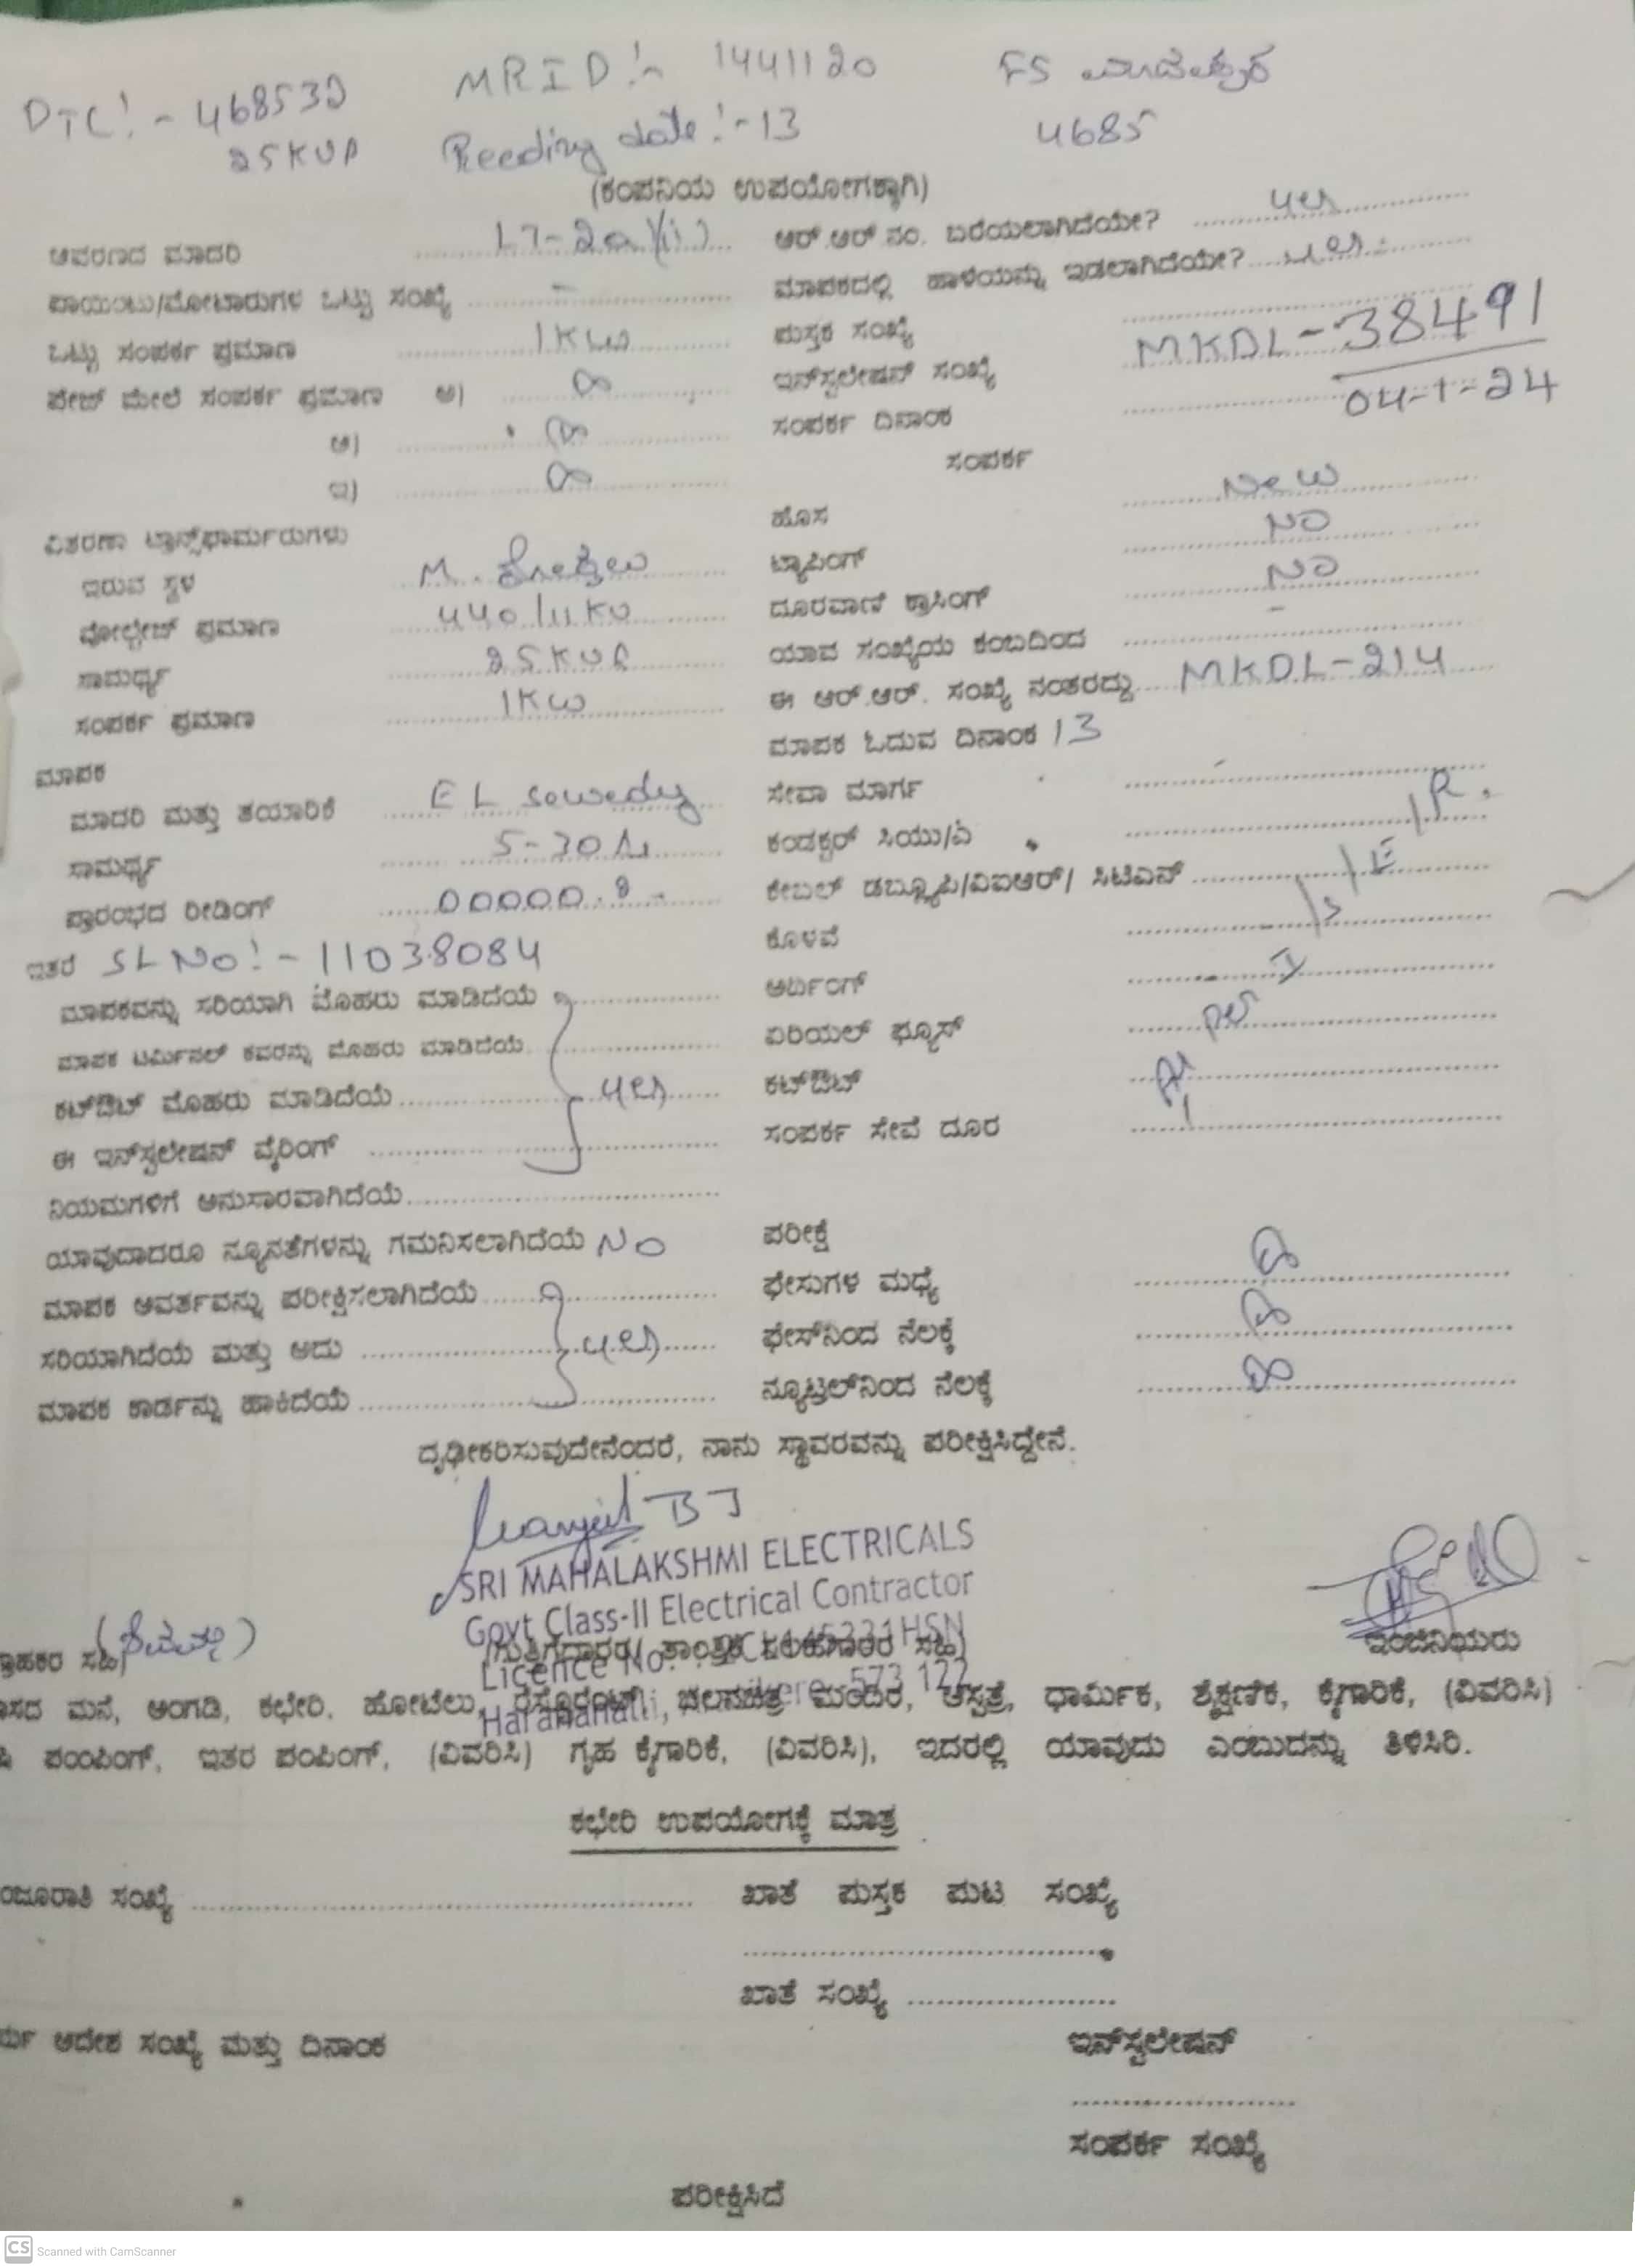 MRID:- 1441120
DTC:- 468532
25KVA
Reeding date:-13
FS
4685
(ಕಂಪನಿಯ ಉಪಯೋಗಕ್ಕಾಗಿ)
ಆವರಣದ ಮಾದರಿ LT-2a(ii) ಆರ್.ಆರ್.ನಂ. ಬರೆಯಲಾಗಿದೆಯೇ? yes
ಪಾಯಿಂಟು/ಮೋಟಾರುಗಳ ಒಟ್ಟು ಸಂಖ್ಯೆ - ಮಾಪಕದಲ್ಲಿ ಹಾಳೆಯನ್ನು ಇಡಲಾಗಿದೆಯೇ? yes
ಒಟ್ಟು ಸಂಪರ್ಕ ಪ್ರಮಾಣ 1KW ಪುಸ್ತಕ ಸಂಖ್ಯೆ
ಪೇಜ್ ಮೇಲೆ ಸಂಪರ್ಕ ಪ್ರಮಾಣ ಅ) ∞ ಇನ್‌ಸ್ಟಲೇಷನ್ ಸಂಖ್ಯೆ MKDL-38491
ಆ) ∞ ಸಂಪರ್ಕ ದಿನಾಂಕ 04-1-24
ಇ) ∞ ಸಂಪರ್ಕ
ವಿತರಣಾ ಟ್ರಾನ್ಸ್‌ಫಾರ್ಮರುಗಳು ಹೊಸ New
ಇರುವ ಸ್ಥಳ M. ಟ್ಯಾಪಿಂಗ್ NO
ವೋಲ್ಟೇಜ್ ಪ್ರಮಾಣ 440/11KV ದೂರವಾಣಿ ಕ್ರಾಸಿಂಗ್ NO
ಸಾಮರ್ಥ್ಯ 25KVA ಯಾವ ಸಂಖ್ಯೆಯ ಕಂಬದಿಂದ -
ಸಂಪರ್ಕ ಪ್ರಮಾಣ 1KW ಈ ಆರ್.ಆರ್. ಸಂಖ್ಯೆ ನಂತರದ್ದು MKDL-214
ಮಾಪಕ ಮಾಪಕ ಓದುವ ದಿನಾಂಕ 13
ಮಾದರಿ ಮತ್ತು ತಯಾರಿಕೆ EL sewedy ಸೇವಾ ಮಾರ್ಗ
ಸಾಮರ್ಥ್ಯ 5-30A ಕಂಡಕ್ಟರ್ ಸಿಯು/ಎ
ಪ್ರಾರಂಭದ ರೀಡಿಂಗ್ 00000.8 - ಕೇಬಲ್ ಡಬ್ಲ್ಯೂಪಿ/ವಿಐಆರ್/ ಸಿಟಿಎಸ್
ಇತರೆ SL NO:- 11038084 ಕೊಳವೆ
ಮಾಪಕವನ್ನು ಸರಿಯಾಗಿ ಮೊಹರು ಮಾಡಿದೆಯೆ ಅರ್ಥಿಂಗ್
ಮಾಪಕ ಟರ್ಮಿನಲ್ ಕವರನ್ನು ಮೊಹರು ಮಾಡಿದೆಯೆ ಏರಿಯಲ್ ಫ್ಯೂಸ್
ಕಟ್‌ಔಟ್ ಮೊಹರು ಮಾಡಿದೆಯೆ yes ಕಟ್‌ಔಟ್
ಈ ಇನ್‌ಸ್ಟಲೇಷನ್ ವೈರಿಂಗ್ ಸಂಪರ್ಕ ಸೇವೆ ದೂರ
ನಿಯಮಗಳಿಗೆ ಅನುಸಾರವಾಗಿದೆಯೆ
ಯಾವುದಾದರೂ ನ್ಯೂನತೆಗಳನ್ನು ಗಮನಿಸಲಾಗಿದೆಯೆ NO ಪರೀಕ್ಷೆ
ಮಾಪಕ ಆವರ್ತವನ್ನು ಪರೀಕ್ಷಿಸಲಾಗಿದೆಯೆ ಫೇಸುಗಳ ಮಧ್ಯೆ ∞
ಸರಿಯಾಗಿದೆಯೆ ಮತ್ತು ಅದು yes ಫೇಸ್‌ನಿಂದ ನೆಲಕ್ಕೆ ∞
ಮಾಪಕ ಕಾರ್ಡನ್ನು ಹಾಕಿದೆಯೆ ನ್ಯೂಟ್ರಲ್‌ನಿಂದ ನೆಲಕ್ಕೆ ∞
ದೃಢೀಕರಿಸುವುದೇನೆಂದರೆ, ನಾನು ಸ್ಥಾವರವನ್ನು ಪರೀಕ್ಷಿಸಿದ್ದೇನೆ.
SRI MAHALAKSHMI ELECTRICALS
Govt Class-II Electrical Contractor
ಗ್ರಾಹಕರ ಸಹಿ (ಗುತ್ತಿಗೆದಾರರ/ ತಾಂತ್ರಿಕ ಸಲಹೆಗಾರರ ಸಹಿ) ಇಂಜಿನಿಯರು
Licence No.
ಮನೆ, ಅಂಗಡಿ, ಕಛೇರಿ, ಹೋಟೆಲು, ರೆಸ್ಟೊರೆಂಟ್, ಚಲನಚಿತ್ರ ಮಂದಿರ, ಆಸ್ಪತ್ರೆ, ಧಾರ್ಮಿಕ, ಶೈಕ್ಷಣಿಕ, ಕೈಗಾರಿಕೆ, (ವಿವರಿಸಿ)
Haranahalli, 573 122
ಪಂಪಿಂಗ್, ಇತರ ಪಂಪಿಂಗ್, (ವಿವರಿಸಿ) ಗೃಹ ಕೈಗಾರಿಕೆ, (ವಿವರಿಸಿ), ಇದರಲ್ಲಿ ಯಾವುದು ಎಂಬುದನ್ನು ತಿಳಿಸಿರಿ.
ಕಛೇರಿ ಉಪಯೋಗಕ್ಕೆ ಮಾತ್ರ
ಮಂಜೂರಾತಿ ಸಂಖ್ಯೆ ಖಾತೆ ಪುಸ್ತಕ ಪುಟ ಸಂಖ್ಯೆ
ಖಾತೆ ಸಂಖ್ಯೆ
ಆದೇಶ ಸಂಖ್ಯೆ ಮತ್ತು ದಿನಾಂಕ ಇನ್‌ಸ್ಟಲೇಷನ್
ಸಂಪರ್ಕ ಸಂಖ್ಯೆ
ಪರೀಕ್ಷಿಸಿದೆ
CS Scanned with CamScanner